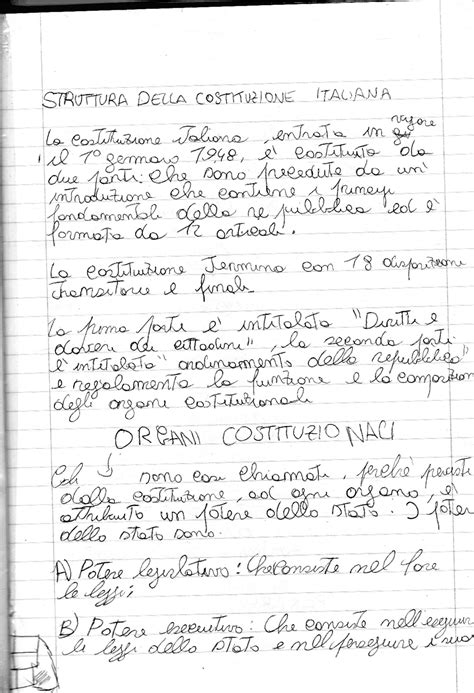 STRUTTURA DELLA COSTITUZIONE ITALIANA
vigore
La costituzione italiana, entrata in
il 1° gennaio 1948, è costituita da
due parti: che sono precedute da un'
introduzione che contiene i principi
fondamentali della repubblica ed è
formata da 12 articoli.
La costituzione termina con 18 disposizioni
transitorie e finali
La prima parte è intitolata "Diritti e
doveri dei cittadini", la seconda parte
è intitolata "ordinamento della repubblica"
e regolamenta la funzione e la composizione
degli organi costituzionali
ORGANI COSTITUZIONALI
sono così chiamati, perchè previsti
dalla costituzione, ad ogni organo, è
attribuito un potere dello stato. I poteri
dello stato sono:
A) Potere legislativo: Che consiste nel fare
le leggi;
B) Potere esecutivo: Che consiste nell'eseguire
le leggi dello stato e nel perseguire i suoi